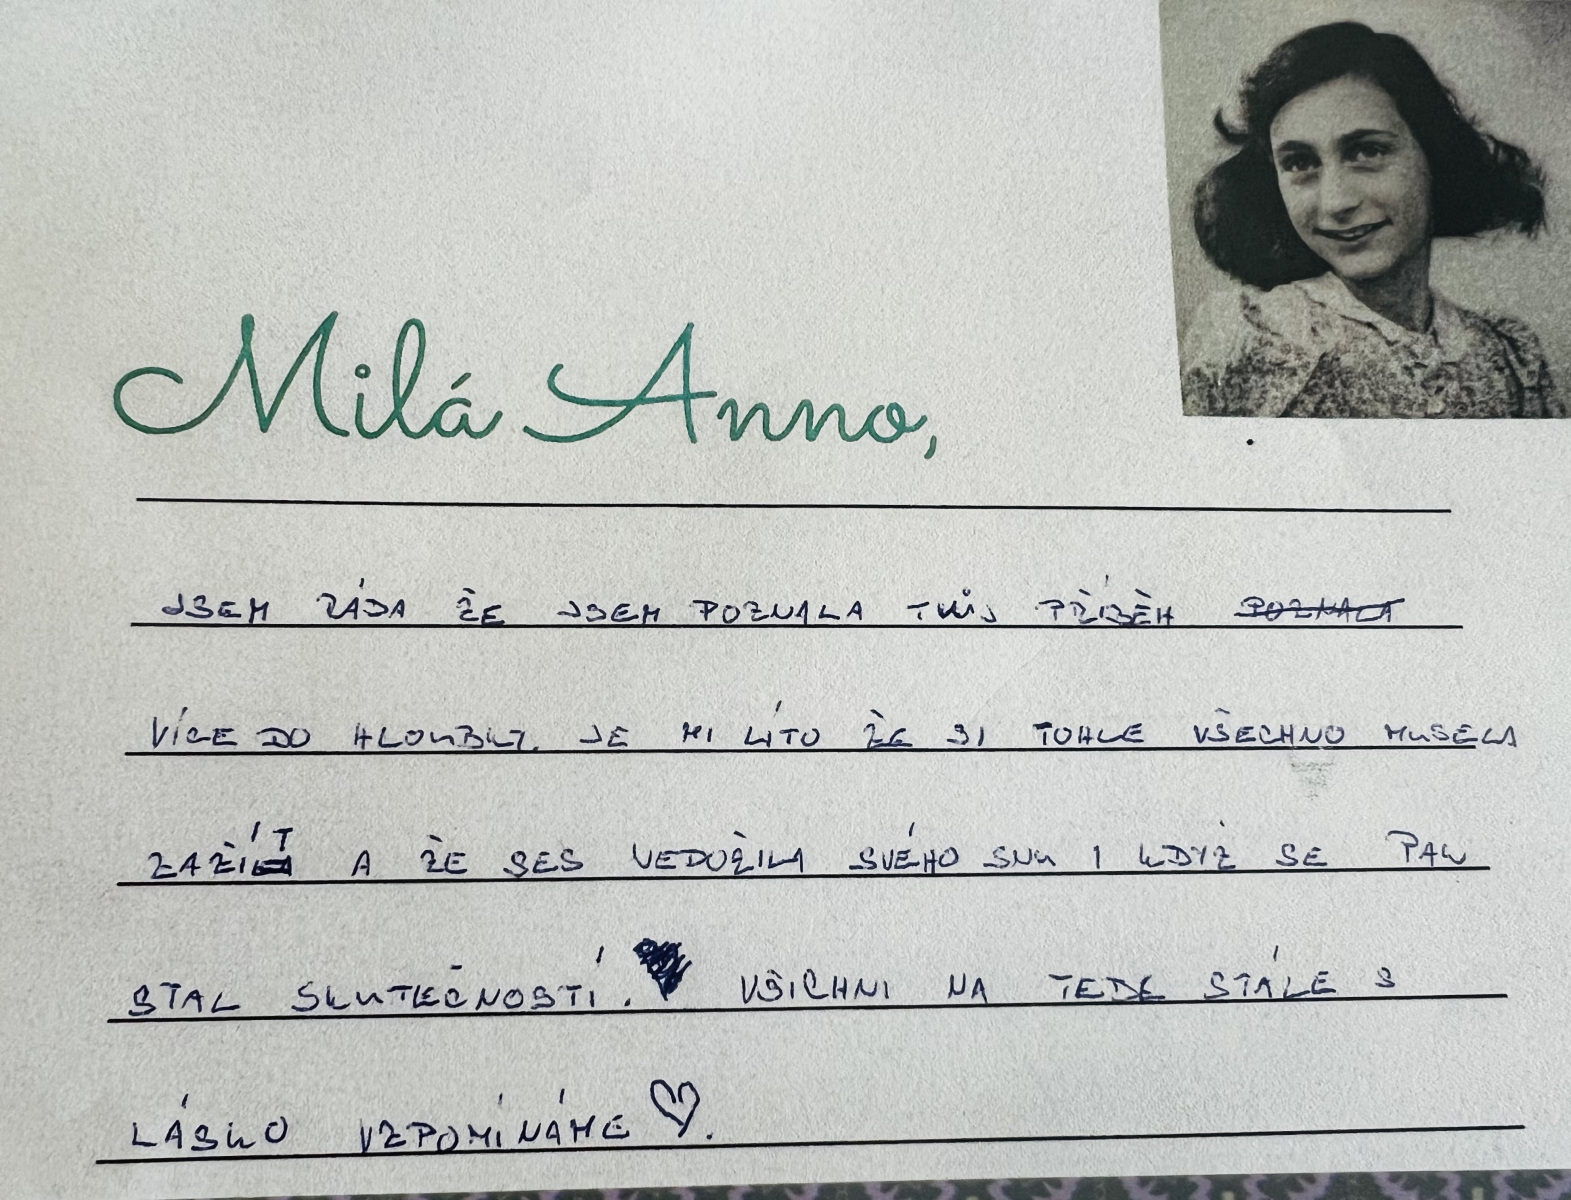 Milá Anno,
JSEM RÁDA ŽE JSEM POZNALA TVŮJ PŘÍBĚH POZNALA
VÍCE DO HLOUBKY. JE MI LÍTO ŽE SI TOHLE VŠECHNO MUSELA
ZAŽÍT A ŽE SES NEDOŽILA SVÉHO SNU I KDYŽ SE PAK
STAL SKUTEČNOSTÍ. VŠICHNI NA TEBE STÁLE S
LÁSKO VZPOMÍNÁME ♡.